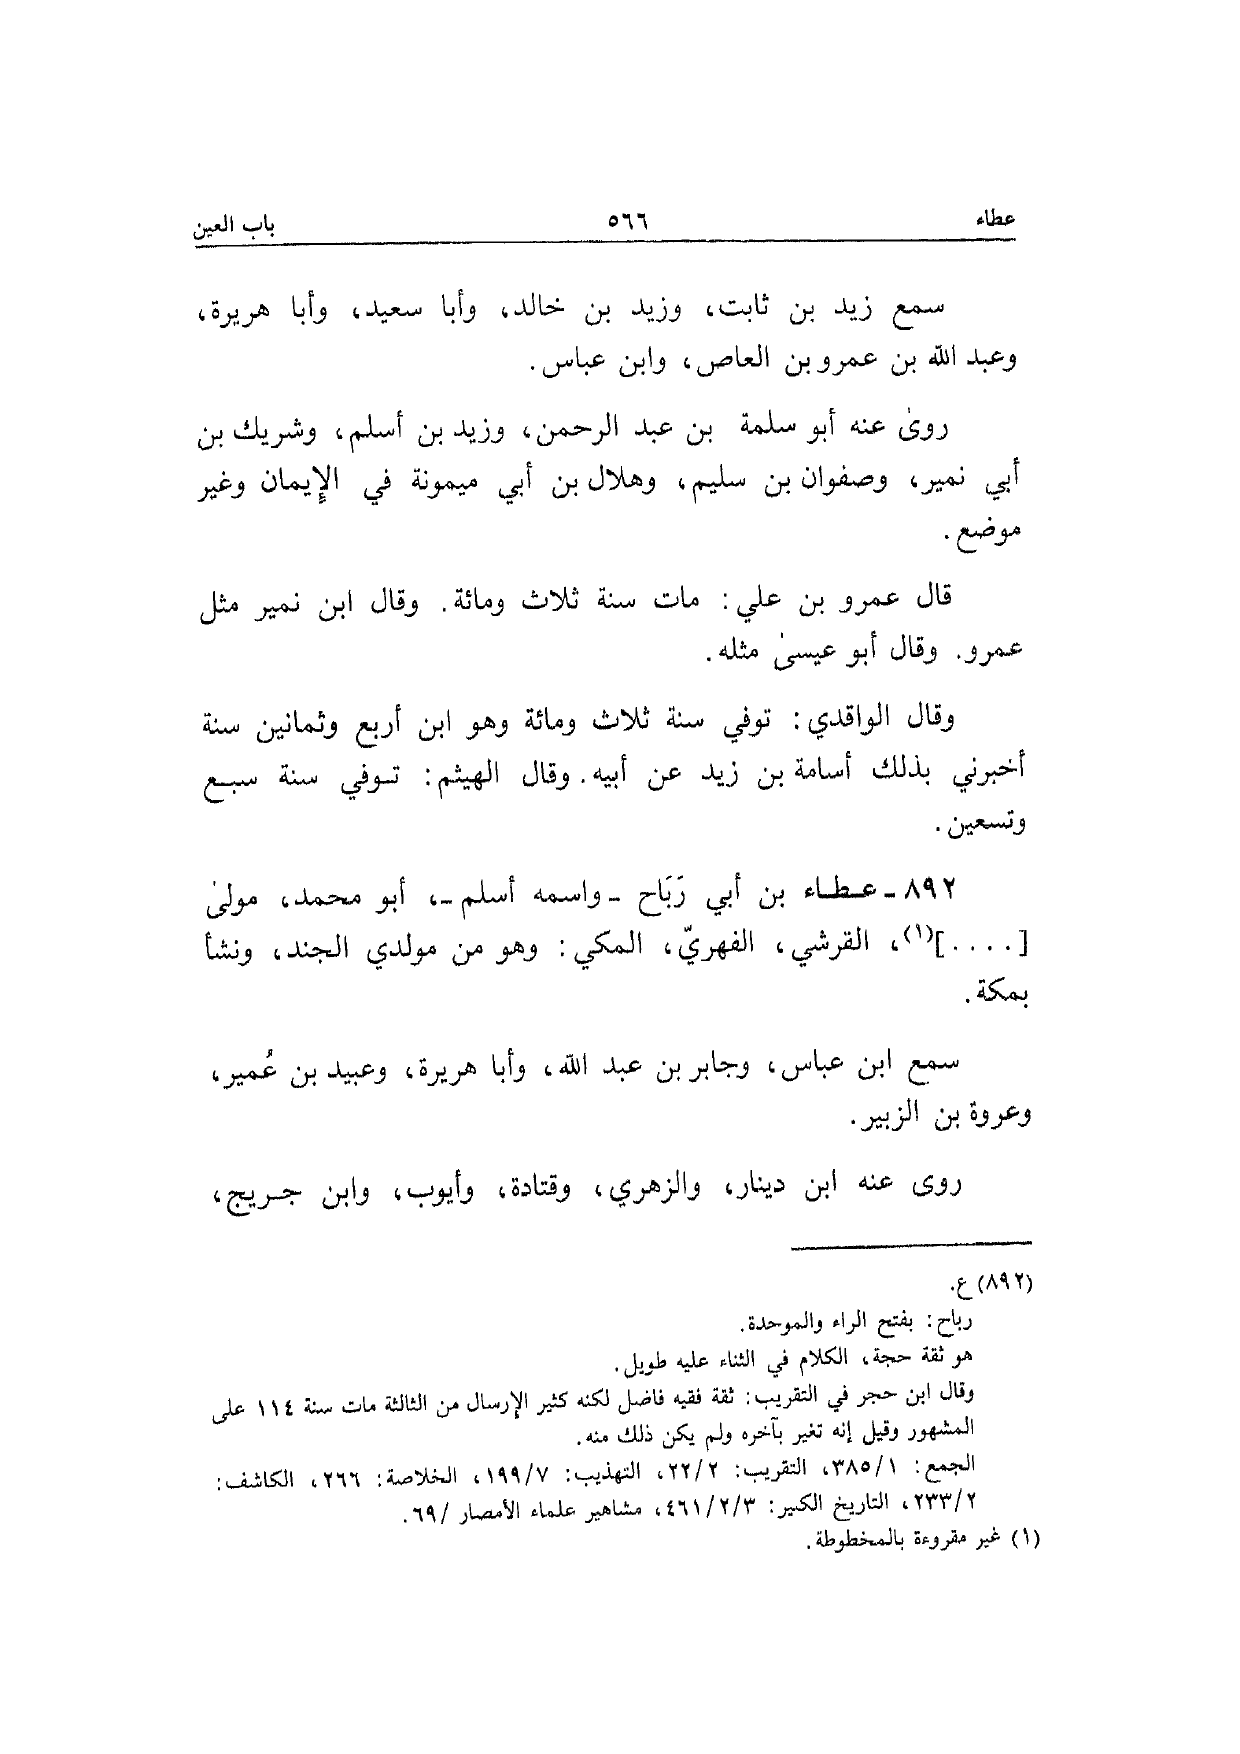 عطاء ٥٦٦ باب العين
سمع زيد بن ثابت، وزيد بن خالد، وأبا سعيد، وأبا هريرة،
وعبد الله بن عمرو بن العاص، وابن عباس.
روىٰ عنه أبو سلمة بن عبد الرحمن، وزيد بن أسلم، وشريك بن
أبي نمير، وصفوان بن سليم، وهلال بن أبي ميمونة في الإيمان وغير
موضع.
قال عمرو بن علي: مات سنة ثلاث ومائة. وقال ابن نمير مثل
عمرو. وقال أبو عيسىٰ مثله.
وقال الواقدي: توفي سنة ثلاث ومائة وهو ابن أربع وثمانين سنة
أخبرني بذلك أسامة بن زيد عن أبيه. وقال الهيثم: تـوفي سنة سبـع
وتسعين.
٨٩٢ - عـطـاء بن أبي رَبَاح - واسمه أسلم -، أبو محمد، مولىٰ
[....](١)، القرشي، الفهريّ، المكي: وهو من مولدي الجند، ونشأ
بمكة.
سمع ابن عباس، وجابر بن عبد الله، وأبا هريرة، وعبيد بن عُمير،
وعروة بن الزبير.
روى عنه ابن دينار، والزهري، وقتادة، وأيوب، وابن جـريج،
(٨٩٢) ع.
رباح: بفتح الراء والموحدة.
هو ثقة حجة، الكلام في الثناء عليه طويل.
وقال ابن حجر في التقريب: ثقة فقيه فاضل لكنه كثير الإرسال من الثالثة مات سنة ١١٤ على
المشهور وقيل إنه تغير بآخره ولم يكن ذلك منه.
الجمع: ٣٨٥/١، التقريب: ٢٢/٢، التهذيب: ١٩٩/٧، الخلاصة: ٢٦٦، الكاشف:
٢٣٣/٢، التاريخ الكبير: ٤٦١/٢/٣، مشاهير علماء الأمصار /٦٩.
(١) غير مقروءة بالمخطوطة.